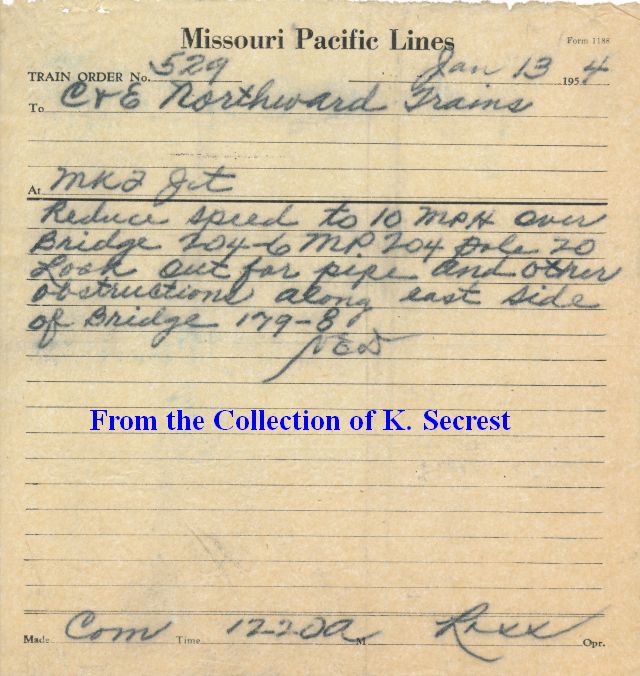 Missouri Pacific Lines
Form 1188
TRAIN ORDER No. 529 Jan 13 1954
To C&E Northward Trains
At MK2 Jct
Reduce speed to 10 MPH over
Bridge 204-6 MP. 204 Pole 20
Look out for pipe and other
obstructions along east side
of Bridge 179-8
NED
From the Collection of K. Secrest
Made Com Time 12-20a M Opr.